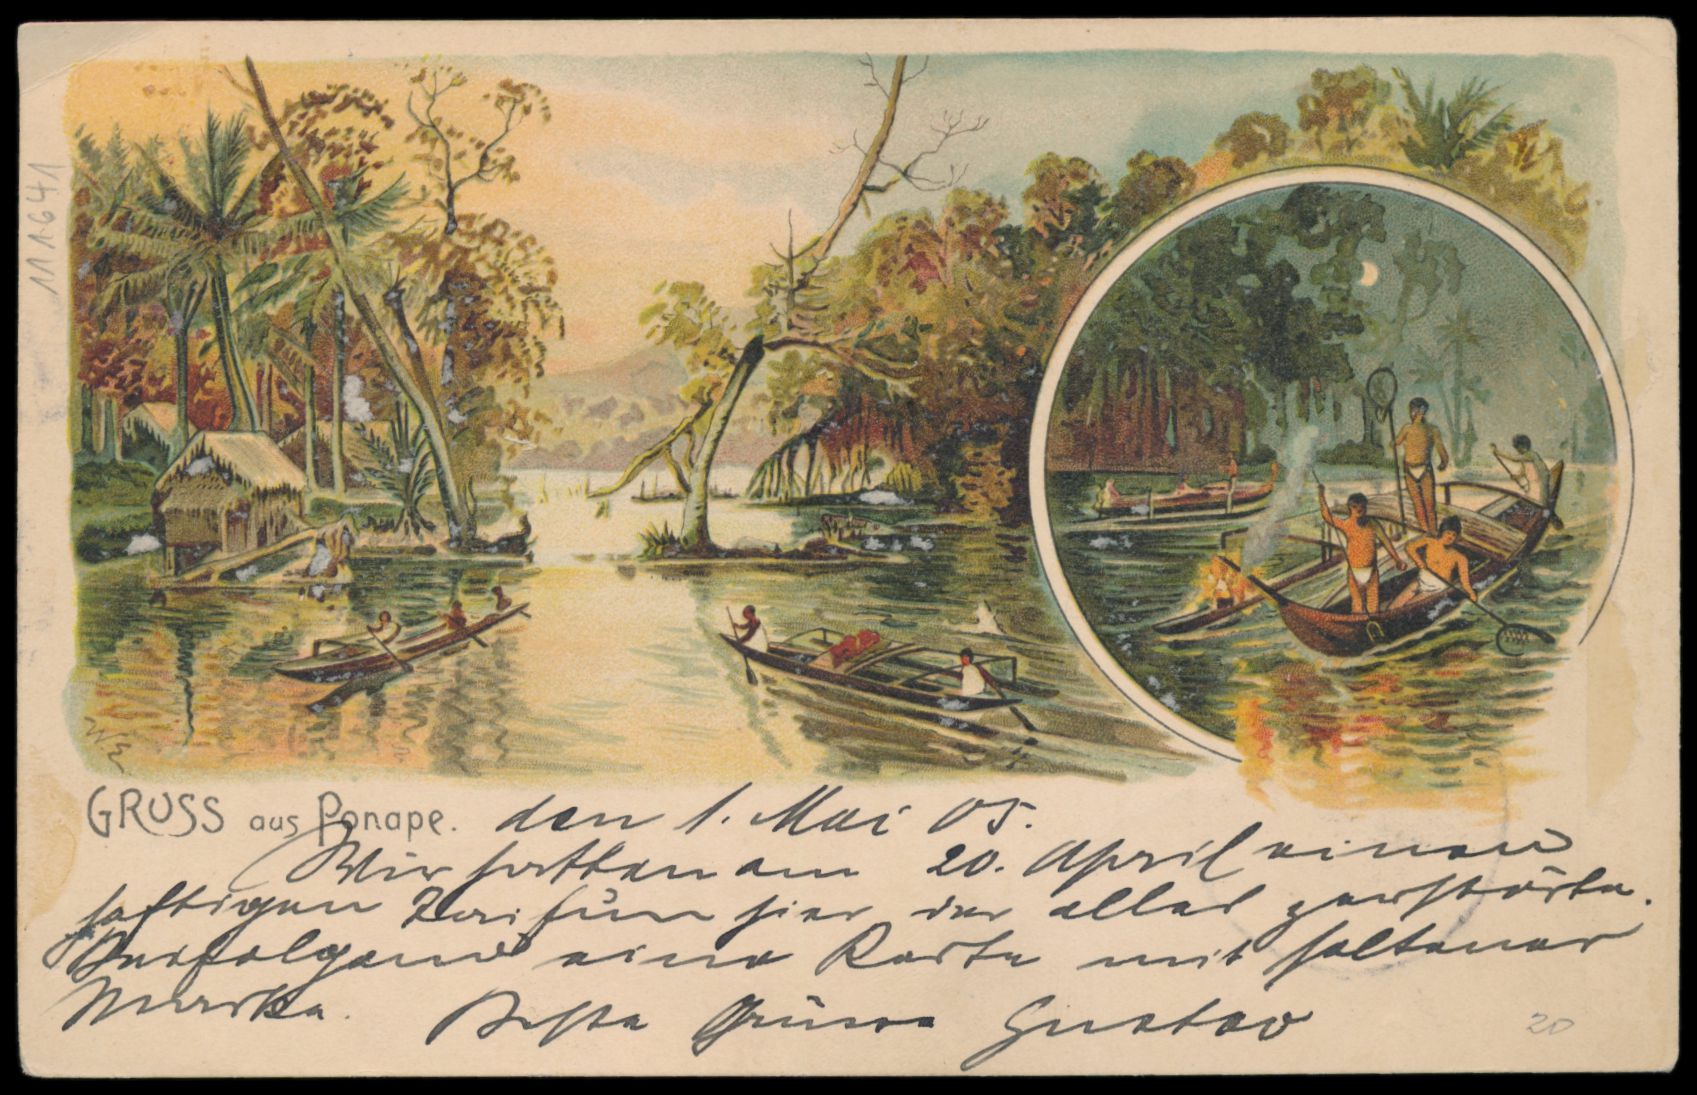 111641
WE
GRUSS aus Ponape. den 1. Mai 05.
Wir hatten am 20. April einen
heftigen Taifun hier der alles zerstörte.
Beifolgend eine Karte mit seltener
Marke. Beste Grüsse Gustav
20